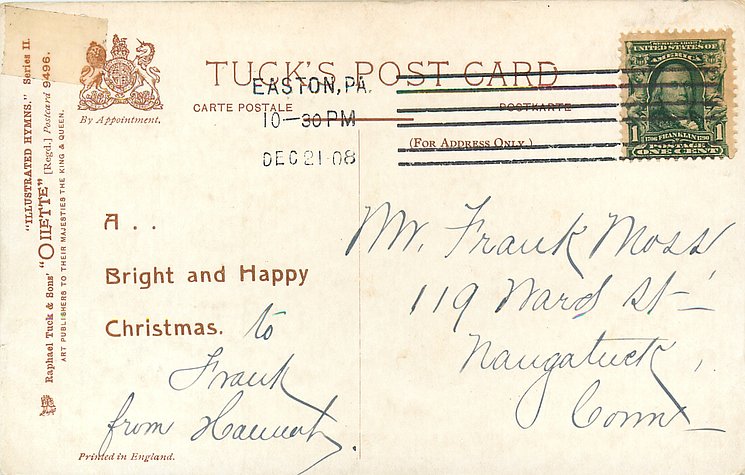 "ILLUSTRATED HYMNS." Series II.
Raphael Tuck & Sons' "OILETTE" [Regd.] Postcard 9496.
ART PUBLISHERS TO THEIR MAJESTIES THE KING & QUEEN.
By Appointment.
TUCK'S POST CARD
CARTE POSTALE
POSTKARTE
(FOR ADDRESS ONLY.)
EASTON, PA.
10-30 PM
DEC 21 08
UNITED STATES OF
AMERICA
1706 FRANKLIN 1790
1 POSTAGE 1
ONE CENT
A . .
Bright and Happy
Christmas. to
Frank
from
Printed in England.
Mr. Frank Moss
119 Ward St
Naugatuck,
Conn